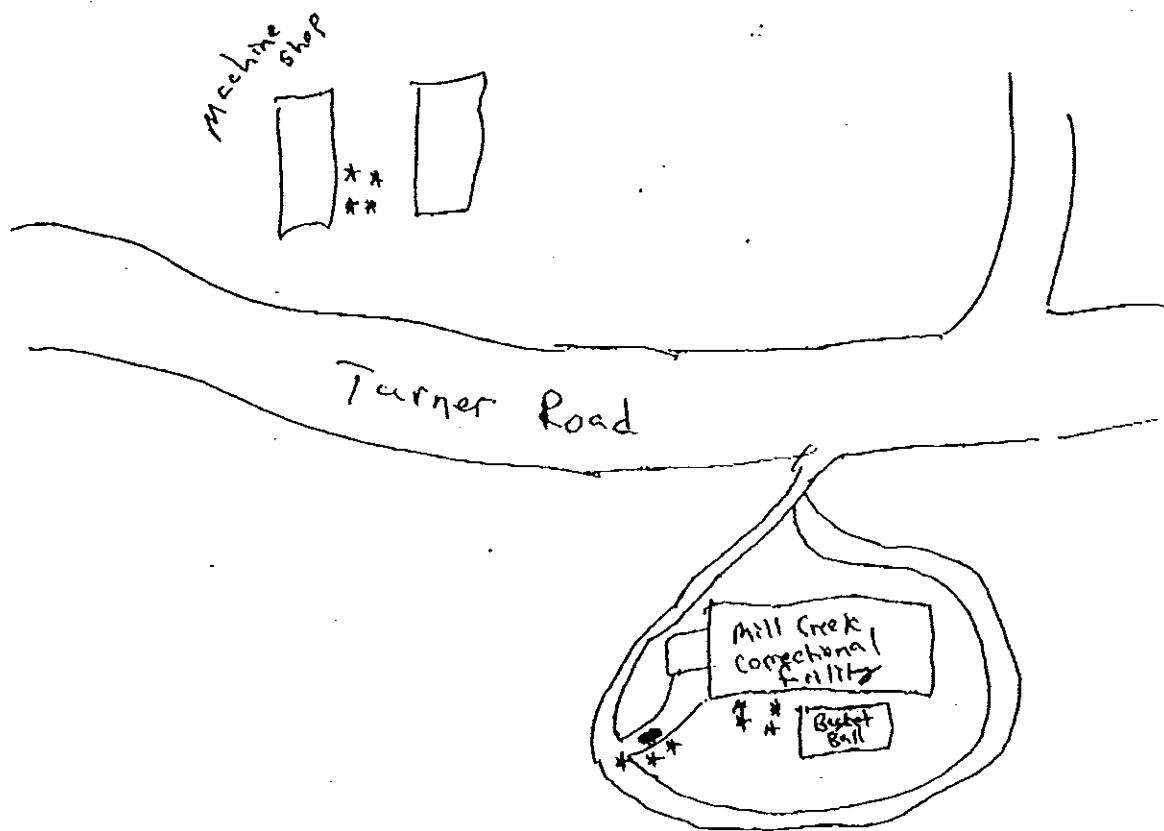 Machine
shop
Turner Road
Mill Creek
Correctional
fcility
Basket
Ball